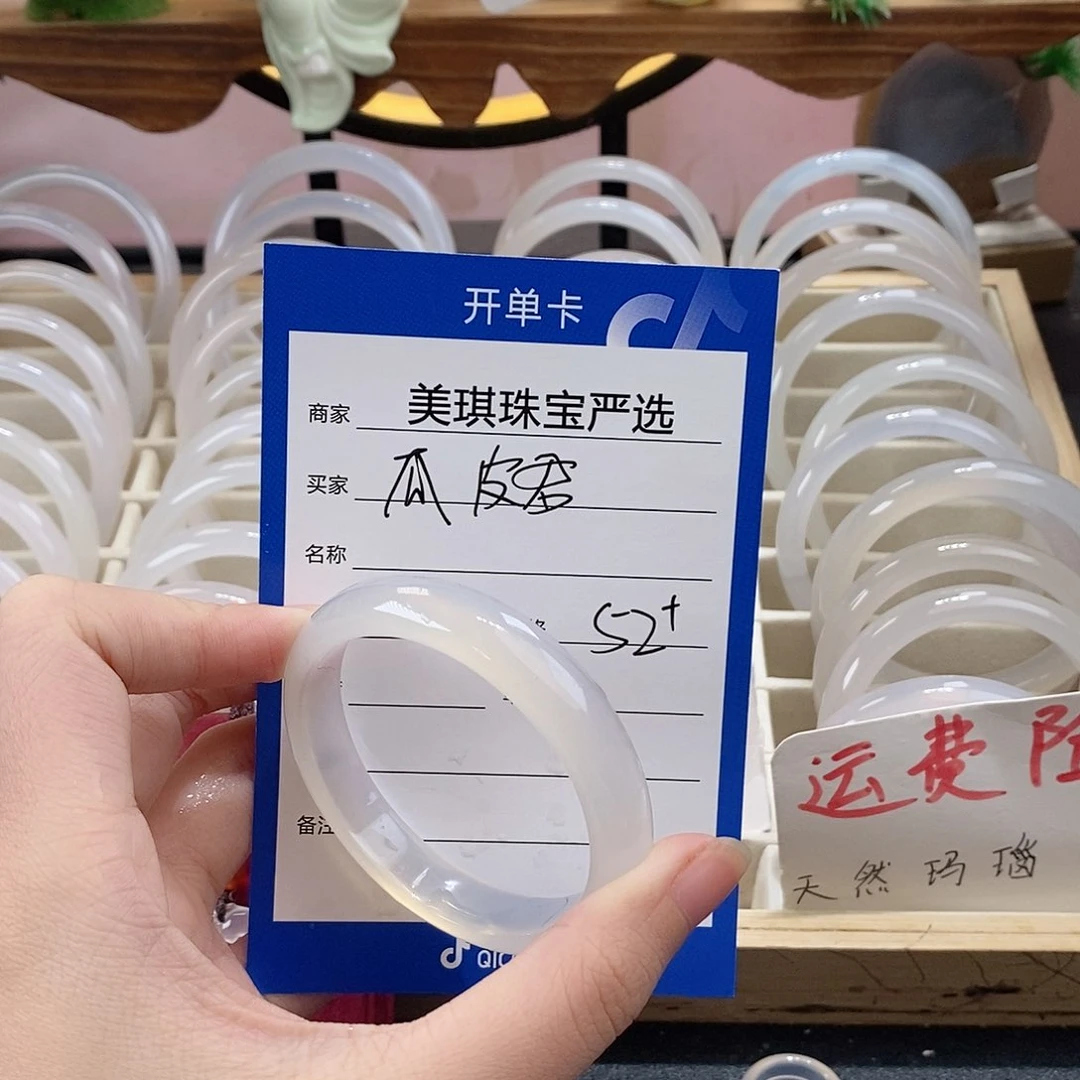 开单卡
商家 美琪珠宝严选
买家 瓜皮蛋
名称
52+
备注
运费
天然玛瑙